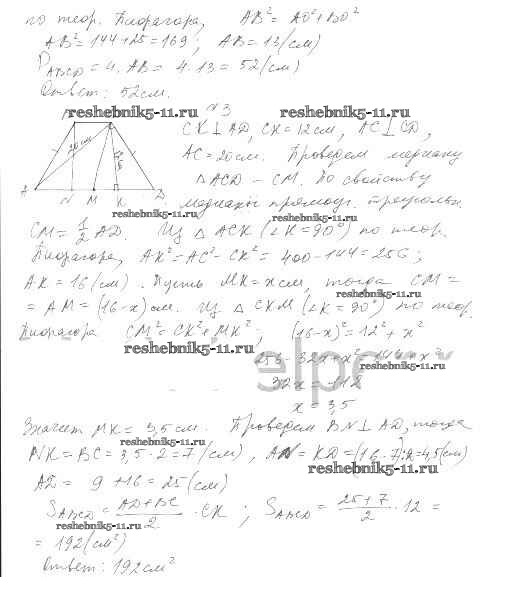 по теор. Пифагора, AB² = AO² + BO²
AB² = 144 + 25 = 169; AB = 13 (см)
P_ABCD = 4 · AB = 4 · 13 = 52 (см)
Ответ: 52 см.
№3
reshebnik5-11.ru reshebnik5-11.ru
CK ⊥ AD, CK = 12 см, AC ⊥ CD,
AC = 20 см. Проведем медиану
△ ACD – CM. По свойству
reshebnik5-11.ru
медианы прямоуг. треугольн.
20 см
A N M K D
CM = 1/2 AD. Из △ ACK (∠K = 90°) по теор.
reshebnik5-11.ru
Пифагора, AK² = AC² - CK² = 400 - 144 = 256;
AK = 16 (см). Пусть MK = x см, тогда CM =
reshebnik5-11.ru
= AM = (16-x) см. Из △ CKM (∠K = 90°) по теор.
Пифагора CM² = CK² + MK²; (16-x)² = 12² + x²
reshebnik5-11.ru
256 - 32x + x² = 144 + x²
reshebnik5-11.ru
32x = 112
x = 3,5
Значит MK = 3,5 см. Проведем BN ⊥ AD, тогда
reshebnik5-11.ru
NK = BC = 3,5 · 2 = 7 (см), AN = KD = (16-7):2 = 4,5 (см)
reshebnik5-11.ru
AD = 9 + 16 = 25 (см)
S_ABCD = (AD+BC)/2 · CK; S_ABCD = (25+7)/2 · 12 =
reshebnik5-11.ru
= 192 (см²)
Ответ: 192 см²